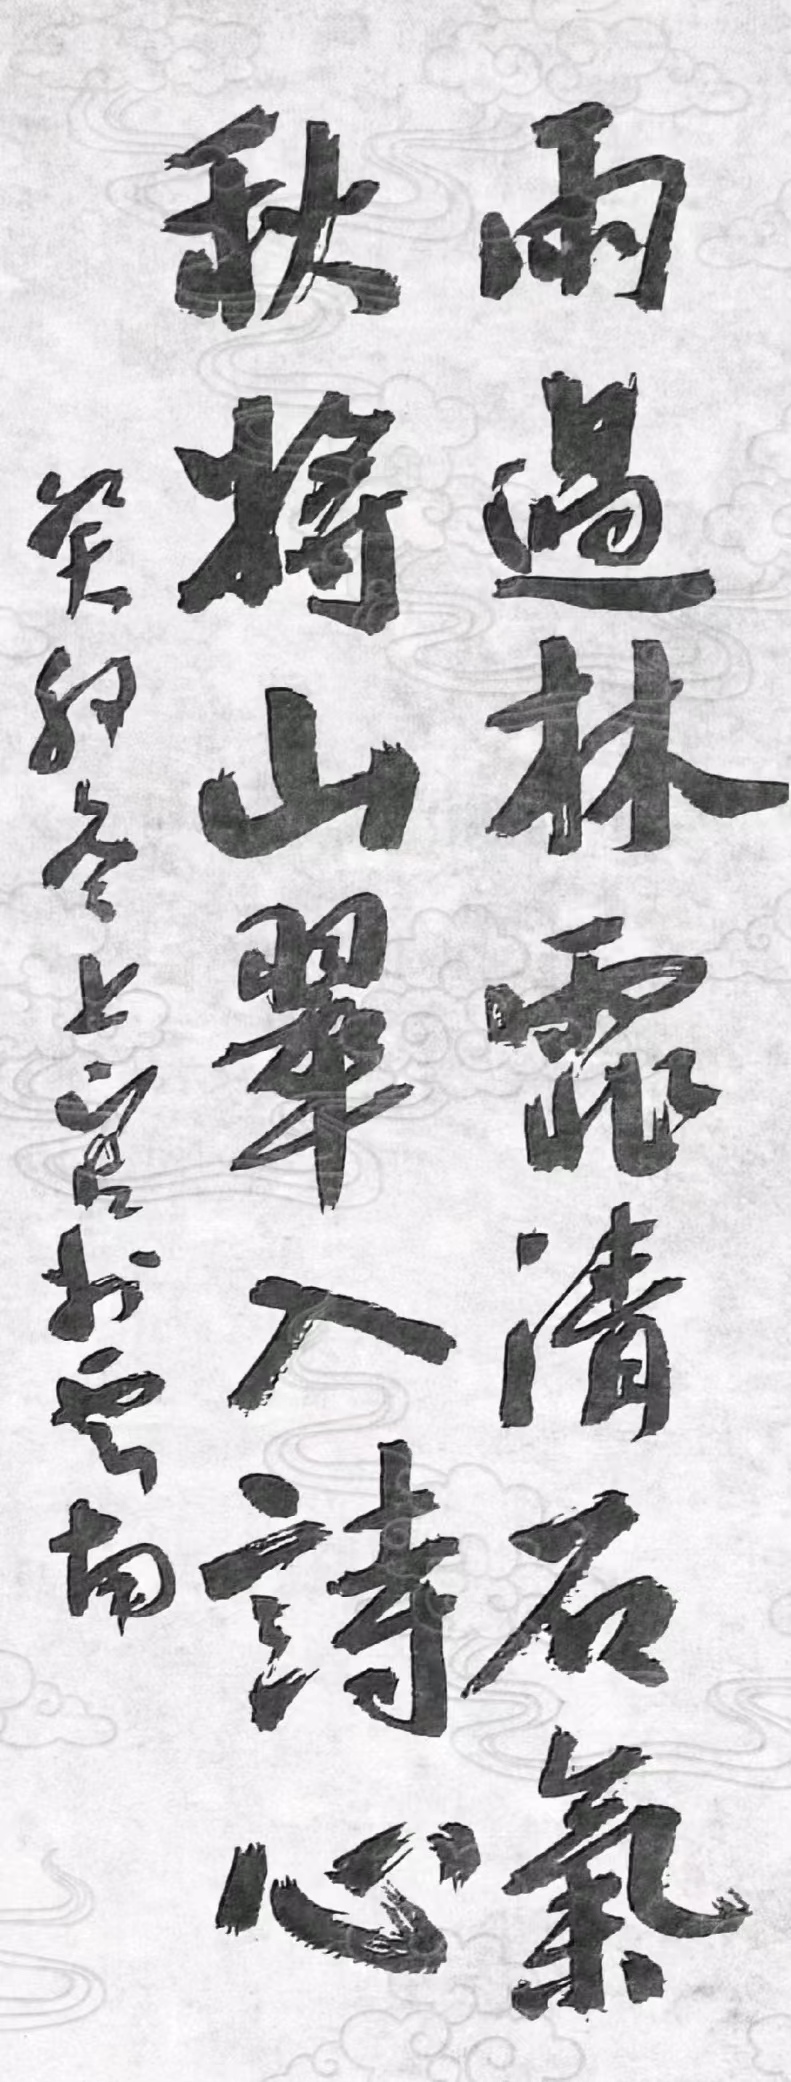 雨過林霏清石氣
秋將山翠入詩心
癸卯冬上官於雲南